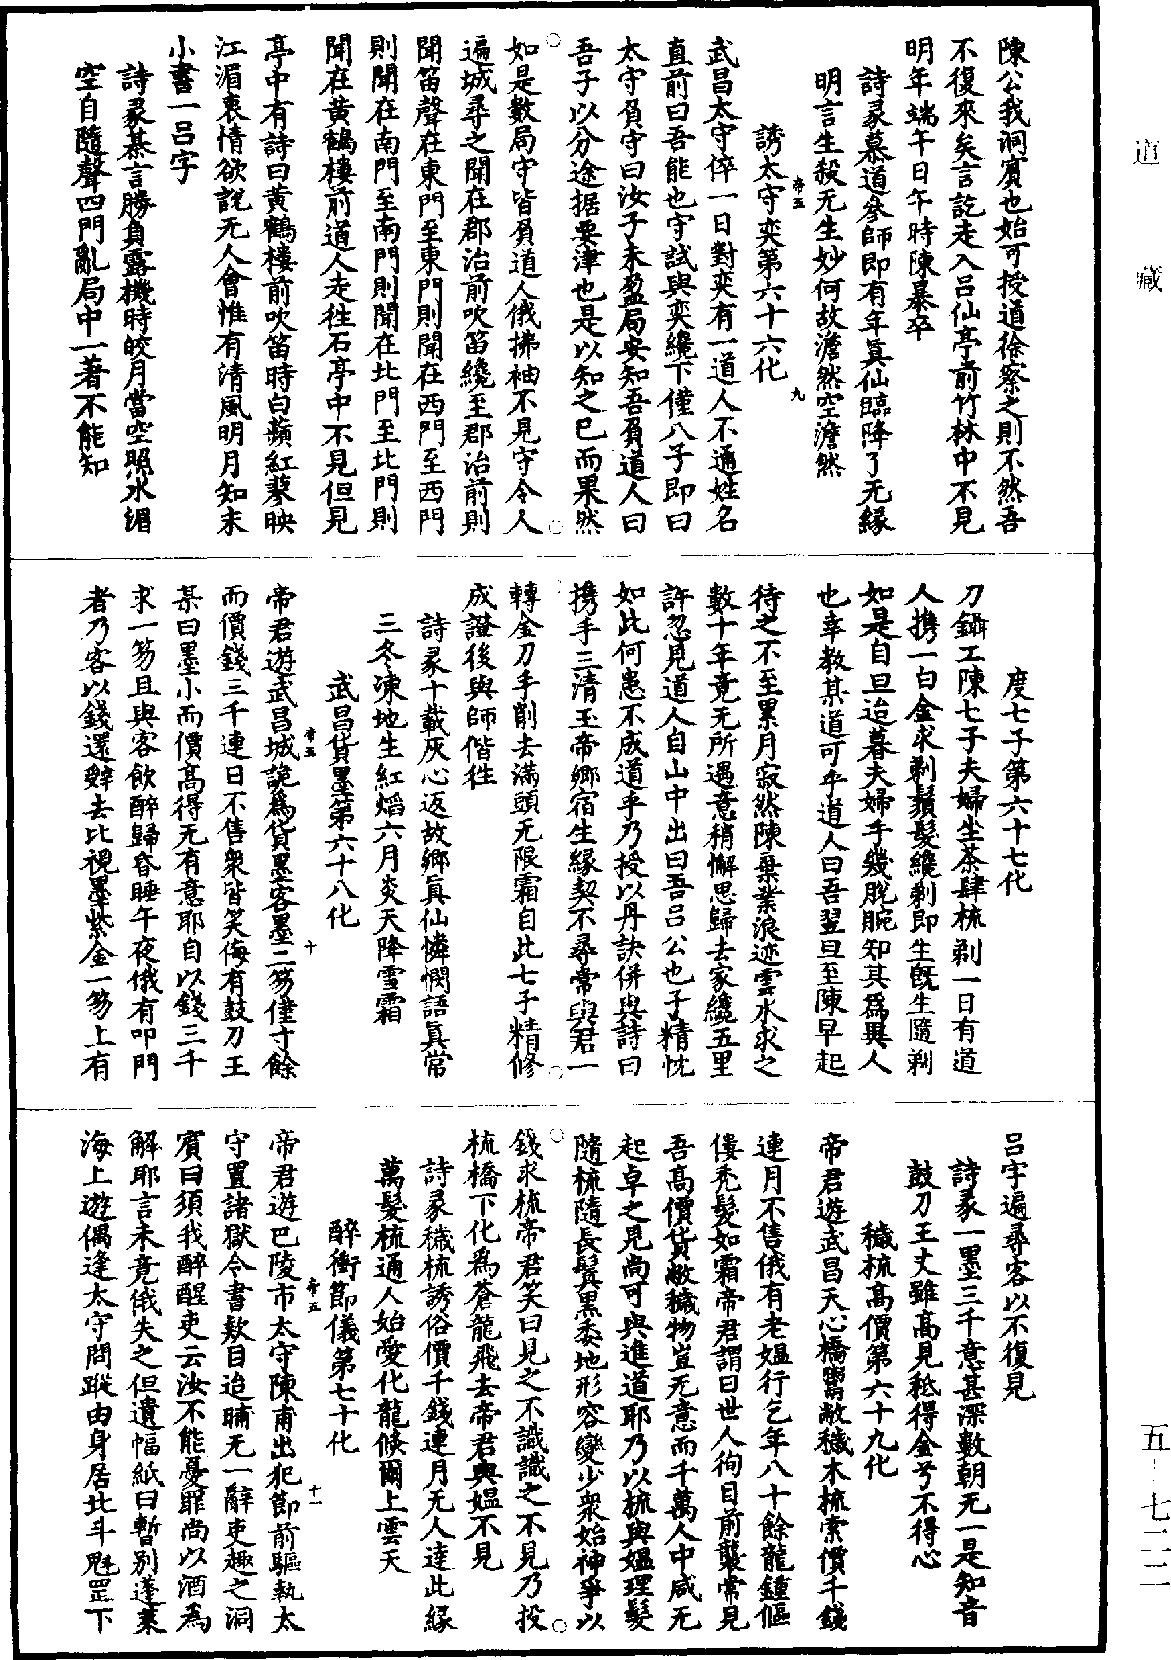 陳公我洞賓也始可授道徐察之則不然吾
不復來矣言訖走入呂仙亭前竹林中不見
明年端午日午時陳暴卒
詩彖慕道參師即有年眞仙臨降了无緣
明言生殺无生妙何故澹然空澹然
誘太守奕第六十六化
帝五
九
武昌太守倅一日對奕有一道人不通姓名
直前曰吾能也守試與奕纔下僅八子即曰
太守負守曰汝子未盈局安知吾負道人曰
吾子以分途据要津也是以知之已而果然
如是數局守皆負道人俄拂袖不見守令人
遍城尋之聞在郡治前吹笛纔至郡治前則
聞笛聲在東門至東門則聞在西門至西門
則聞在南門至南門則聞在北門至北門則
聞在黃鶴樓前道人走往石亭中不見但見
亭中有詩曰黃鶴樓前吹笛時白蘋紅蓼映
江湄衷情欲説无人會惟有清風明月知末
小書一呂字
詩彖棊言勝負露機時皎月當空照水湄
空自隨聲四門亂局中一著不能知
度七子第六十七化
刀鑷工陳七子夫婦坐茶肆梳剃一日有道
人携一白金求剃鬚髮纔剃即生旣生隨剃
如是自旦迨暮夫婦手幾脫腕知其爲異人
也幸教某道可乎道人曰吾翌旦至陳早起
待之不至累月寂然陳棄業浪迹雲水求之
數十年竟无所遇意稍懈思歸去家纔五里
許忽見道人自山中出曰吾呂公也子精忱
如此何患不成道乎乃授以丹訣併與詩曰
携手三清玉帝鄉宿生緣契不尋常與君一
轉金刀手削去滿頭无限霜自此七子精修
成證後與師偕徃
詩彖十載灰心返故鄉眞仙憐憫語眞常
三冬凍地生紅熖六月炎天降雪霜
武昌貨墨第六十八化
帝五
十
帝君遊武昌城詭爲貨墨客墨二笏僅寸餘
而價錢三千連日不售衆皆笑侮有鼓刀王
某曰墨小而價高得无有意耶自以錢三千
求一笏且與客飲醉歸昏睡午夜俄有叩門
者乃客以錢還辤去比視墨紫金一笏上有
呂字遍尋客以不復見
詩彖一墨三千意甚深數朝无一是知音
鼓刀王丈雖高見秪得金兮不得心
櫼梳高價第六十九化
帝君遊武昌天心橋鬻敝櫼木梳索價千錢
連月不售俄有老媼行乞年八十餘龍鍾傴
僂禿髮如霜帝君謂曰世人徇目前襲常見
吾高價貨敝櫼物豈无意而千萬人中咸无
起卓之見尚可與進道耶乃以梳與媼理髮
隨梳隨長鬒黑委地形容變少衆始神爭以
錢求梳帝君笑曰見之不識識之不見乃投
梳橋下化爲蒼龍飛去帝君與媼不見
詩彖櫼梳誘俗價千錢連月无人達此緣
萬髮梳通人始愛化龍倐爾上雲天
醉衝節儀第七十化
帝五
十一
帝君遊巴陵市太守陳甫出犯節前驅執太
守置諸獄令書欵目迨晡无一辭吏趣之洞
賓曰須我醉醒吏云汝不能憂罪尚以酒爲
解耶言未竟俄失之但遺幅紙曰暫别蓬萊
海上遊偶逢太守問蹤由身居北斗魁罡下
道藏
五-七二二